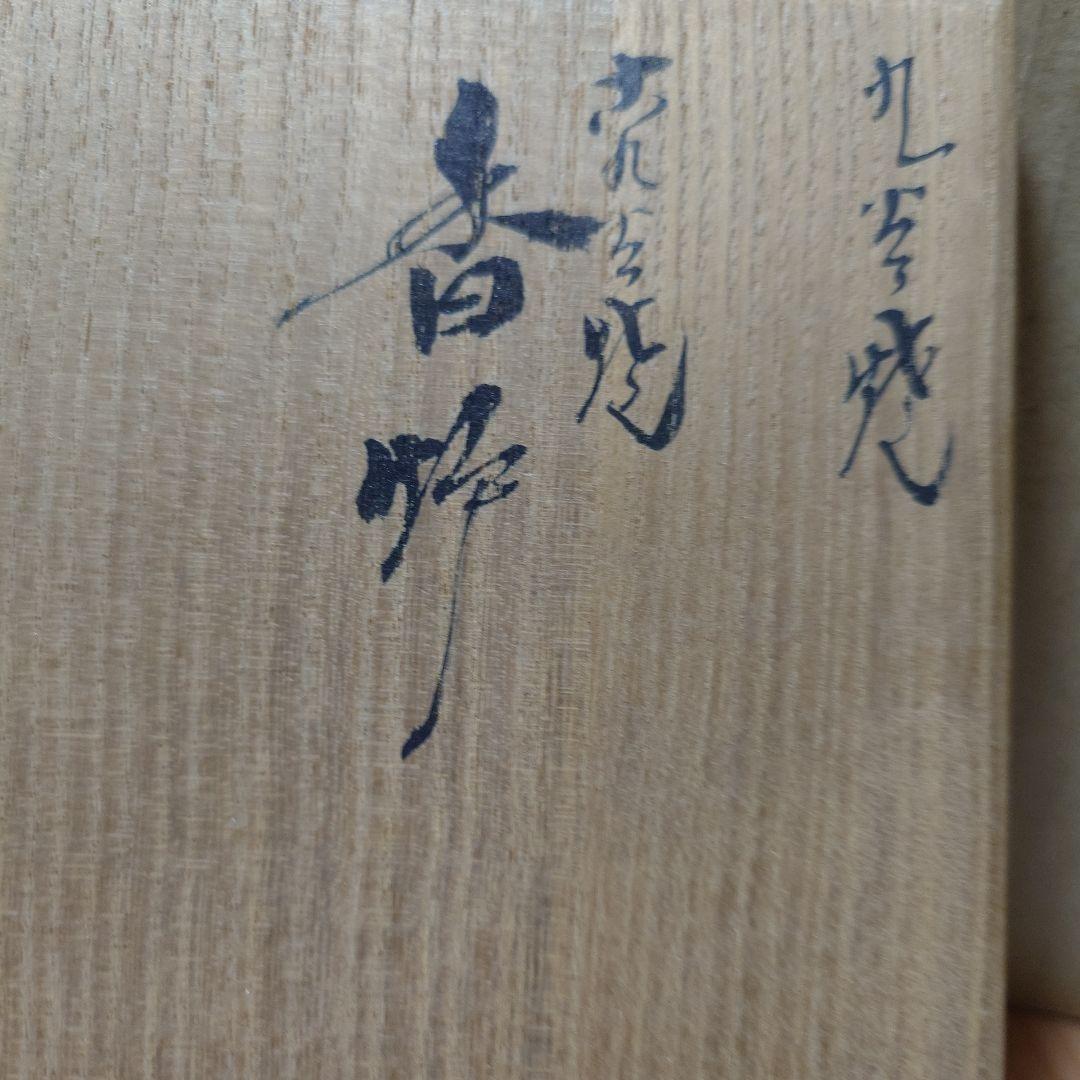 九谷焼
古九谷焼
香炉